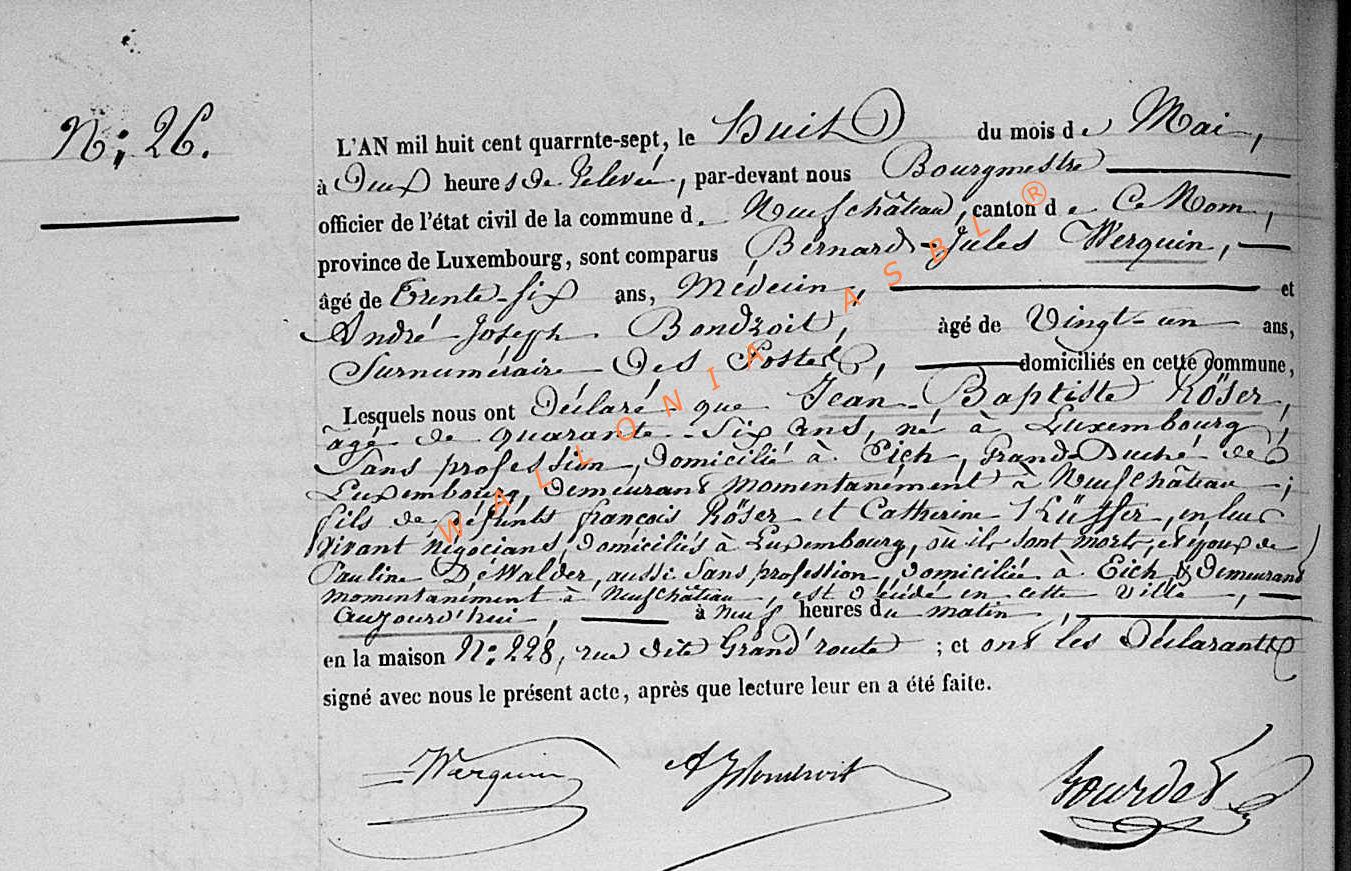 N°: 26.
L'AN mil huit cent quarrnte-sept, le huit du mois de Mai,
à Deux heures de relevée, par-devant nous Bourgmestre
officier de l'état civil de la commune d. Neufchâteau, canton de Ce Nom,
province de Luxembourg, sont comparus Bernard-Jules Werquin,
âgé de trente-six ans, Médecin, et
André-Joseph Bondroit, àgé de Vingt-un ans,
Surnuméraire des Postes, domiciliés en cette commune,
Lesquels nous ont Déclaré que Jean-Baptiste Röser,
âgé de quarante-six ans, né à Luxembourg,
Sans profession, domicilié à Eich, Grand Duché de
Luxembourg, demeurant momentanément à Neufchâteau;
fils de défunts françois Röser et Catherine, en leur
vivant négocians, domiciliés à Luxembourg, où ils sont morts, et époux de
Pauline DéWalder, aussi Sans profession, domiciliée à Eich & demeurant
momentanément à Neufchâteau, est décédé en cette ville,
aujourd'hui, à neuf heures du matin,
en la maison N°: 228, rue dite Grand'route; et ont les Déclarants
signé avec nous le présent acte, après que lecture leur en a été faite.
Werquin AJBondroit Bourdet
WALLONIA ASBL ®